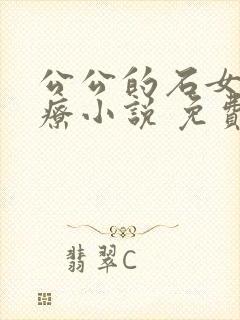 公公的石女
療小說 免費
翡翠C